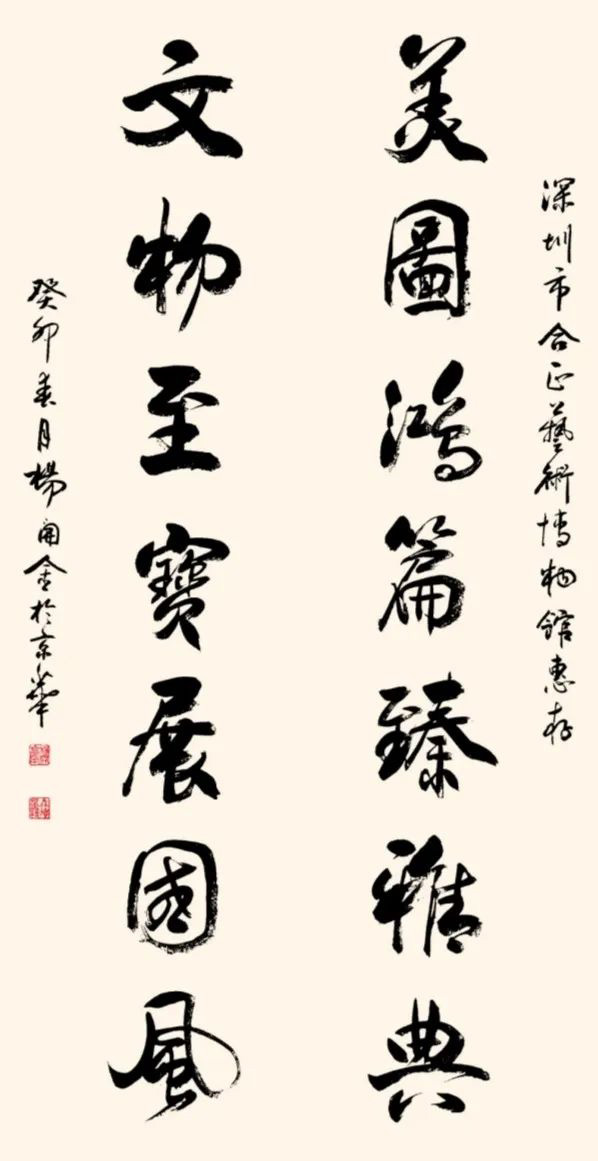 深圳市合正藝術博物館惠存
美圖鴻篇臻雅典
文物至寶展國風
癸卯春月楊開金於京華